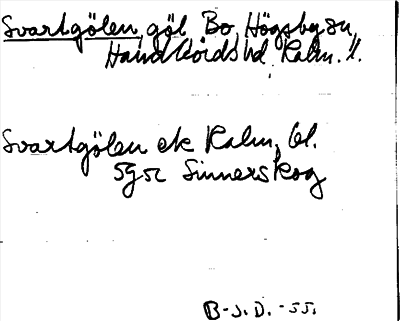 Svartgölen, göl, Bo, Högsby sn,
Handbörds hd, Kalm. l.
Svartgölen ek Kalm. bl.
5g5c Sinnerskog
B-J. D. -55.